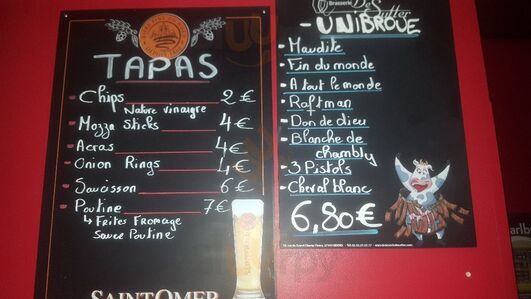 TAPAS
Chips 2€
Nature vinaigre
Mozza Sticks 4€
Acras 4€
Onion Rings 4€
Saucisson 6€
Poutine 7€
↳ Frites Fromage
Sauce Poutine
SAINT OMER
Brasserie De Sutter
UNIBROUE
Maudite
Fin du monde
A tout le monde
Raftman
Don de dieu
Blanche de
chambly
3 Pistols
Cheval blanc
6,80€